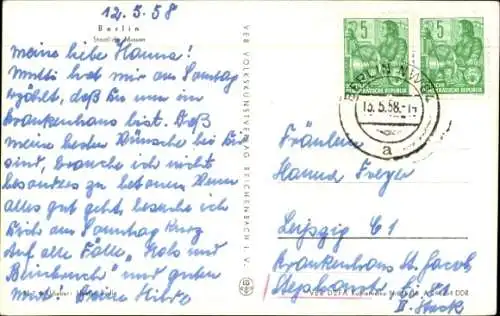 12.5.58
Berlin
Staatliche Museen
meine liebe Hanna!
Mutti hat mir am Sonntag
erzählt, daß Du nun im
Krankenhaus bist. Daß
meine besten Wünsche bei Dir
sind, brauche ich nicht
besonders zu betonen. Wenn
alles gut geht, besuche ich
Dich am Sonntag kurz
Auf alle Fälle „Hals und
Beinbruch" und guten
Mut! Deine
VEB VOLKSKUNSTVERLAG REICHENBACH I. V.
5 5
DEUTSCHE DEMOKRATISCHE REPUBLIK
BERLIN NW
13.5.58
a
Fräulein
Hanna Freyer
Leipzig C1
Krankenhaus St. Jacob
II. Stock
DDR